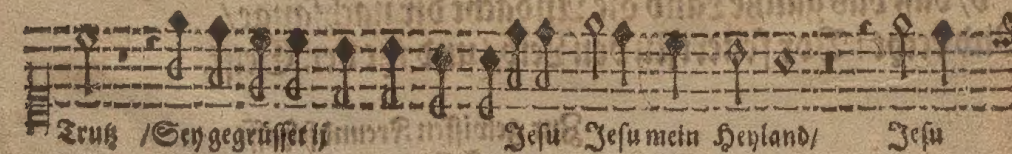 Trutz /Sey gegrüsset ij Jesu Jesu mein Heyland/ Jesu